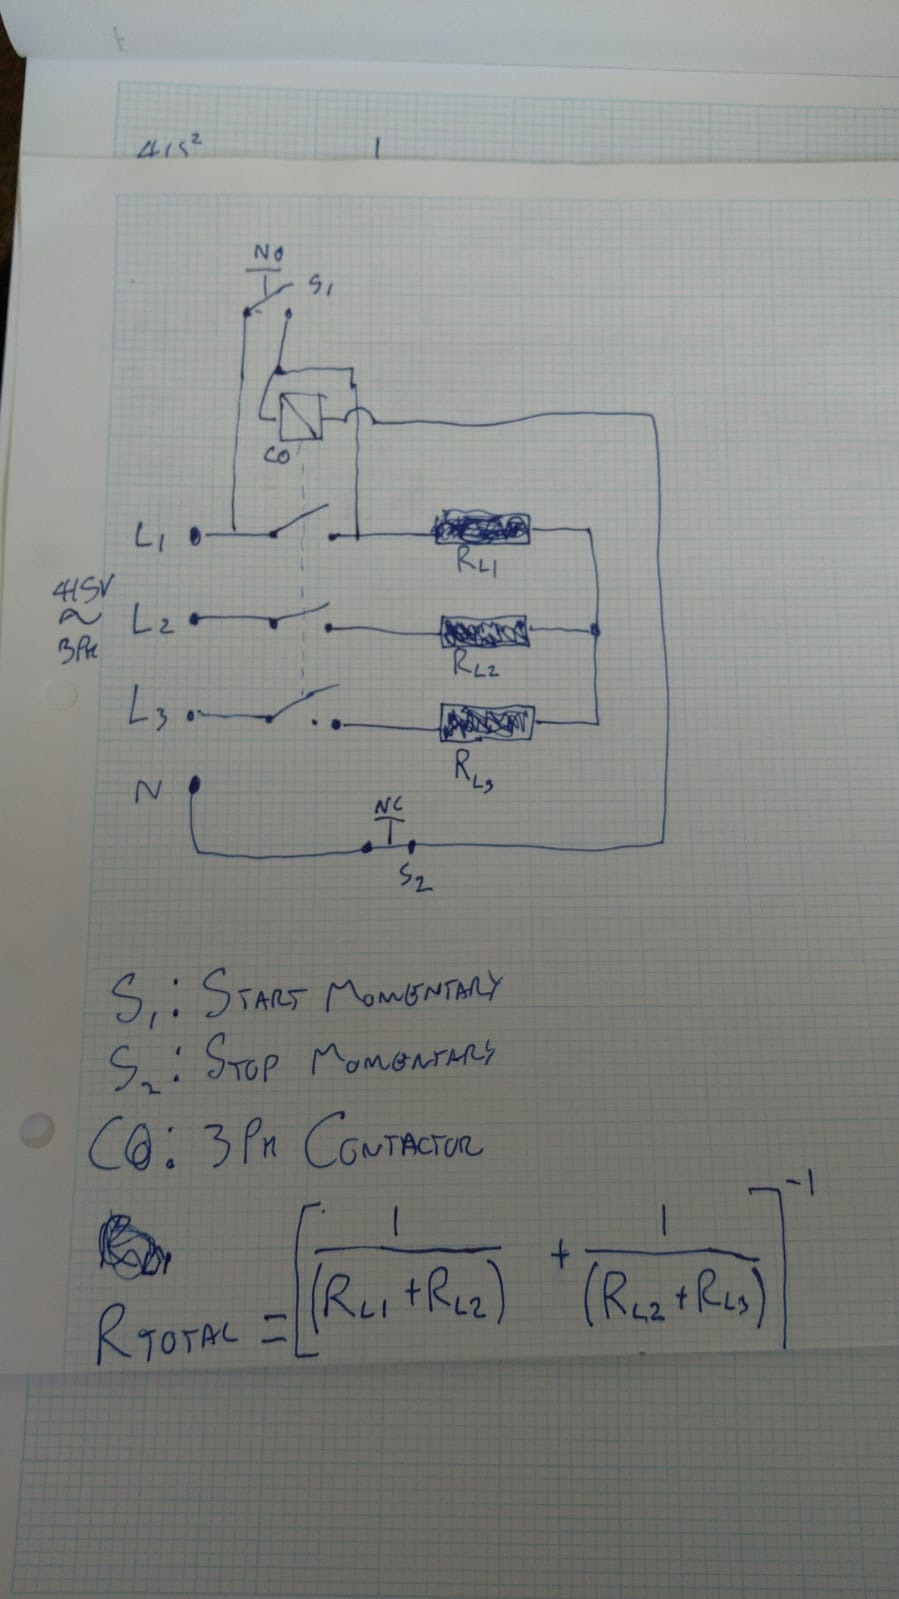 415²
NO
S₁
CO
L₁
R_L1
415V
~
3PH
L₂
R_L2
L₃
R_L3
N
NC
S₂
S₁: START MOMENTARY
S₂: STOP MOMENTARY
CO: 3PH CONTACTOR
R_TOTAL = [1/(R_L1 + R_L2) + 1/(R_L2 + R_L3)]⁻¹